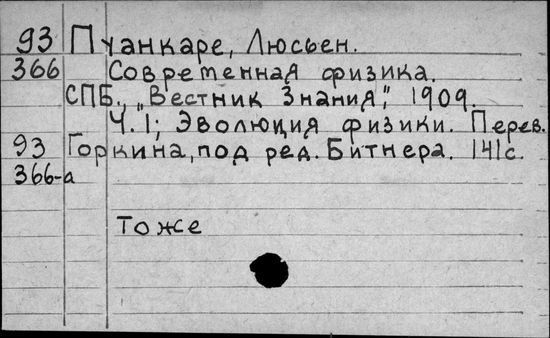 93 Пуанкаре, Люсьен.
366 Современная физика.
СПБ., „Вестник Знания", 1909.
Ч. 1; Эволюция физики. Перев.
93 Горкина, под ред. Битнера. 141с.
366-а
Тоже